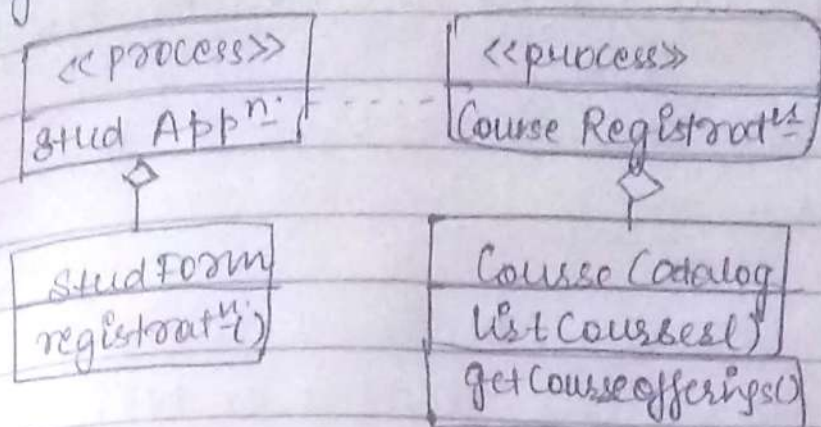 <<process>>
Stud Appⁿ.
<<process>>
Course Registratⁿ
StudForm
registratⁿ()
Course Catalog
listCourses()
getCourseofferings()